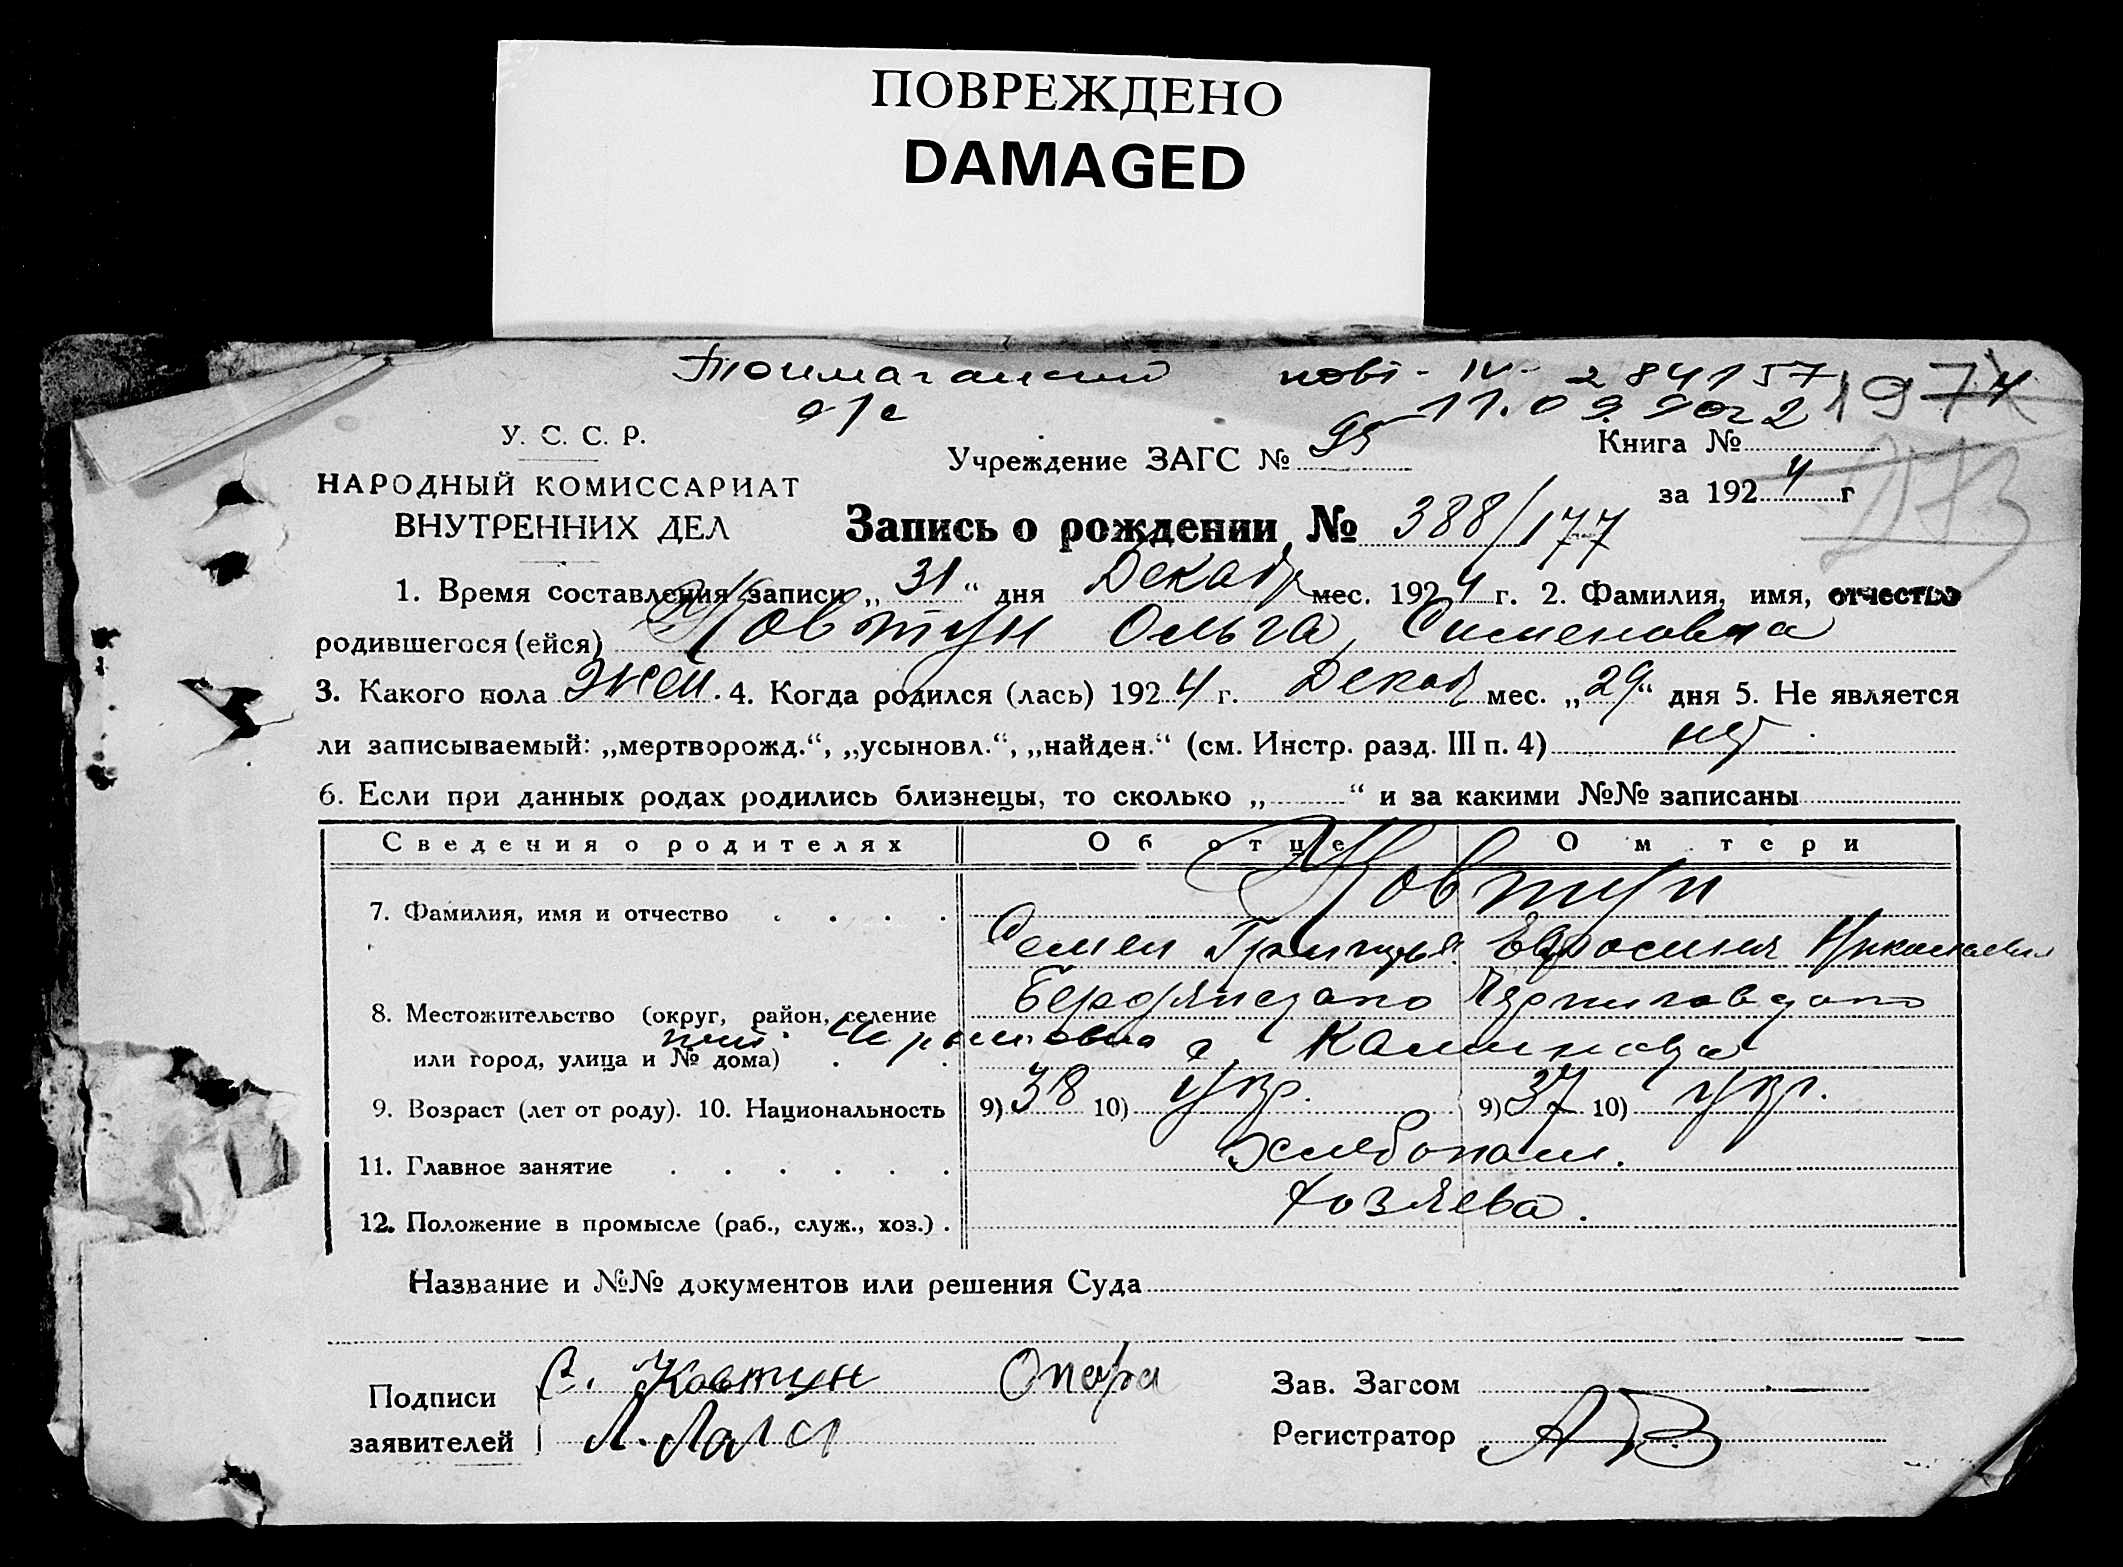 ПОВРЕЖДЕНО
DAMAGED
284157
с/с 11.09.2022
У. С. С. Р.
Учреждение ЗАГС № 95 Книга №
НАРОДНЫЙ КОМИССАРИАТ
ВНУТРЕННИХ ДЕЛ
за 1924 г
Запись о рождении № 388/177
1. Время составления записи „31“ дня Декабр мес. 1924 г. 2. Фамилия, имя, отчество
родившегося (ейся) Ковтун Ольга, Сименовна
3. Какого пола жен. 4. Когда родился (лась) 1924 г. Декаб мес. „29“ дня 5. Не является
ли записываемый: „мертворожд.“, „усыновл.“, „найден.“ (см. Инстр. разд. III п. 4)
6. Если при данных родах родились близнецы, то сколько „ “ и за какими №№ записаны
Сведения о родителях Об отце О м тери
Ковтун
7. Фамилия, имя и отчество
Семен Евросиния Николаевна
8. Местожительство (округ, район, селение
или город, улица и № дома)
9. Возраст (лет от роду). 10. Национальность 9) 38 10) укр. 9) 37 10) укр.
11. Главное занятие хлебопаш.
12. Положение в промысле (раб., служ., хоз.) хозяева.
Название и №№ документов или решения Суда
Подписи С. Ковтун Зав. Загсом
заявителей Регистратор